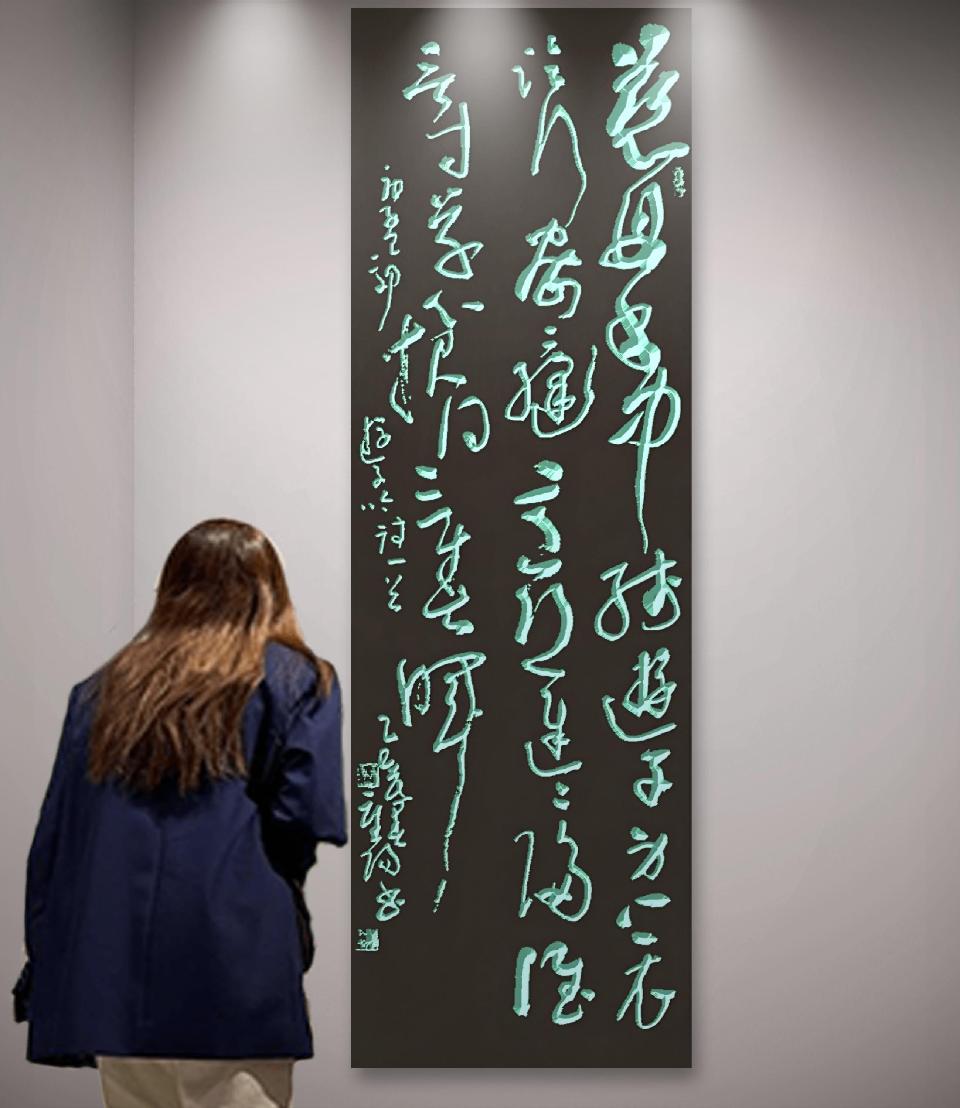 慈母手中線遊子身上衣
臨行密密縫意恐遲遲歸誰
言寸草心報得三春暉
遊子吟詩一首